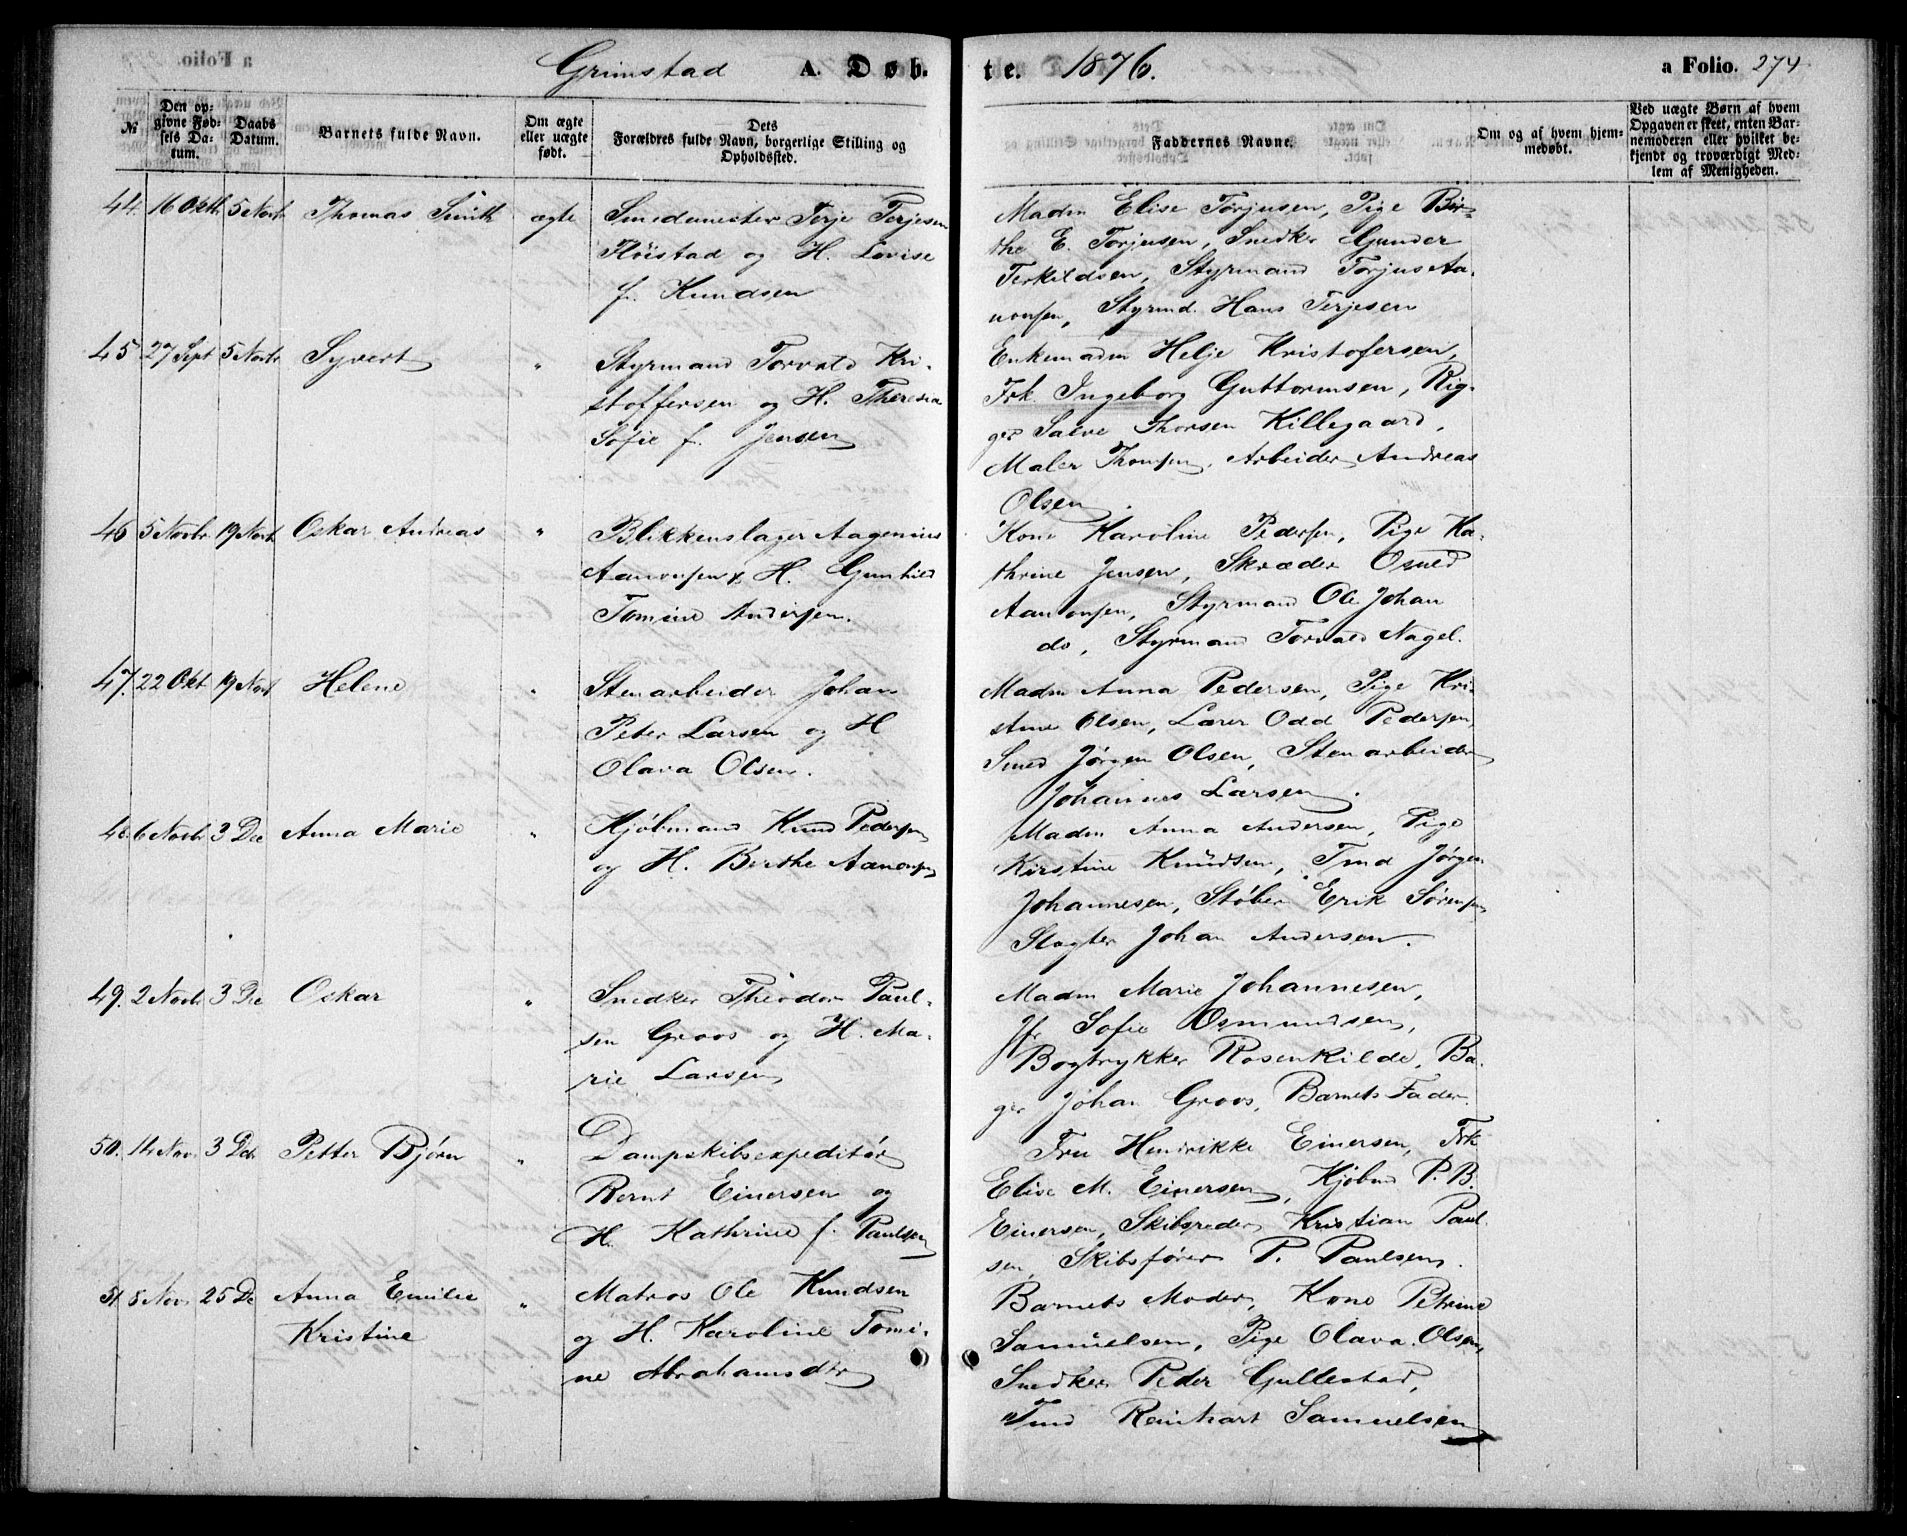 Grimstad A. Døb- te. 1876. a Folio. 274
№ Den opgivne Fødsels Datum. Daabs Datum. Barnets fulde Navn. Om ægte eller uægte født. Dets Forældres fulde Navn, borgerlige Stilling og Opholdssted. Faddernes Navne. Om og af hvem hjemmedøbt. Ved uægte Børn af hvem Opgaven er skeet, enten Barnemoderen eller hvilket bekjendt og troværdigt Medlem af Menigheden.
44. 16 Oktb 5 Novbr Thomas Smith ægte Smedemester Terje Terjesen Madm Elise Torjusen, Pige Bir-
Fløistad og H. Lovise the E. Torjusen, Snedker Gunder
f. Knudsen Terkildsen, Styrmand Torjus Aa-
nonsen, Styrmd. Hans Terjesen
45. 27 Sept 5 Novbr Syvert " Styrmand Torvald Kri- Enkemadm Helje Kristofersen,
stoffersen og H. Theresia Frk. Ingeborg Guttormsen, Rig-
Sofie f. Jensen ger Salve Thorsen Killegaard,
Maler Thomsen, Arbeider Andreas
Olsen.
46 5 Novbr. 19 Novb Oskar Andreas " Blikkenslager Aagenius Kone Karoline Pedersen, Pige Ka-
Aanonsen & H. Gunhild thrine Jensen, Skræder Osmed
Tomine Andersen. Aanonsen, Styrmand Ole Johan
do, Styrmand Torvald Nagel.
47. 22 Okt 19 Novb Helene " Stenarbeider Johan Madm Anna Pedersen, Pige Kri-
Peter Larsen og H stine Olsen, Lærer Odd Pedersen,
Olava Olsen. Smed Jørgen Olsen, Stenarbeider
Johannes Larsen.
48. 6 Novbr 3 Dec Anna Marie " Kjøbmand Knud Pedersen Madm Anna Andersen, Pige
og H. Berthe Aanonsen Kirstine Knudsen, Tmd Jørgen
Johannesen, Støber Erik Sørensen,
Slagter Johan Andersen.
49. 2 Novb 3 Dec Oskar " Snedker Theodor Paul- Madm Marie Johannesen,
sen Groos og H. Ma- Jfr Sofie Osmundsen,
rie Larsen Bogtrykker Rosenkilde, Ba-
ger Johan Groos, Barnets Fader.
50. 14 Nov. 3 Dec Petter Bjørn " Dampskibsexpeditør Fru Henrikke Einersen, Frk
Bernt Einersen og Elise M. Einersen, Kjøbmd P. B.
H. Kathrine f. Paulsen Einersen, Skibsreder Kristian Paul-
sen, Skibsfører P. Paulsen.
51. 8 Nov. 25 De Anna Emilie " Matros Ole Knudsen Barnets Moder, Kone Petrine
Kristine og H. Karoline Tomi- Samuelsen, Pige Olava Olsen,
ne Abrahamsdtr Snedker Peder Gullestad,
Tmd Reinhart Samuelsen